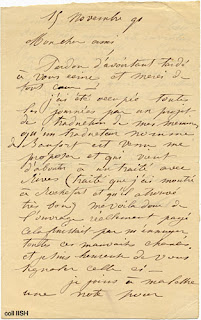 15 Novembre 90
Mon cher ami
Pardon d'avoir tant tardé
à vous écrire et merci de
tout cœur
J'ai été occupé toutes
les journées par un projet
de traduction de mes
qu'un traducteur nommé
de Beaufort est venu me
proposer et qui vient
d'aboutir à un traité avec
(traité que j'ai montré
à Rochefort et qu'il a trouvé
très bon) me voilà donc
l'ouvrage réellement payé
Cela finissait par m'ennuyer
toutes ces mauvaises chances
et plus heureux de vous
signaler celle ci
je joins à ma lettre
une note pour
coll IISH